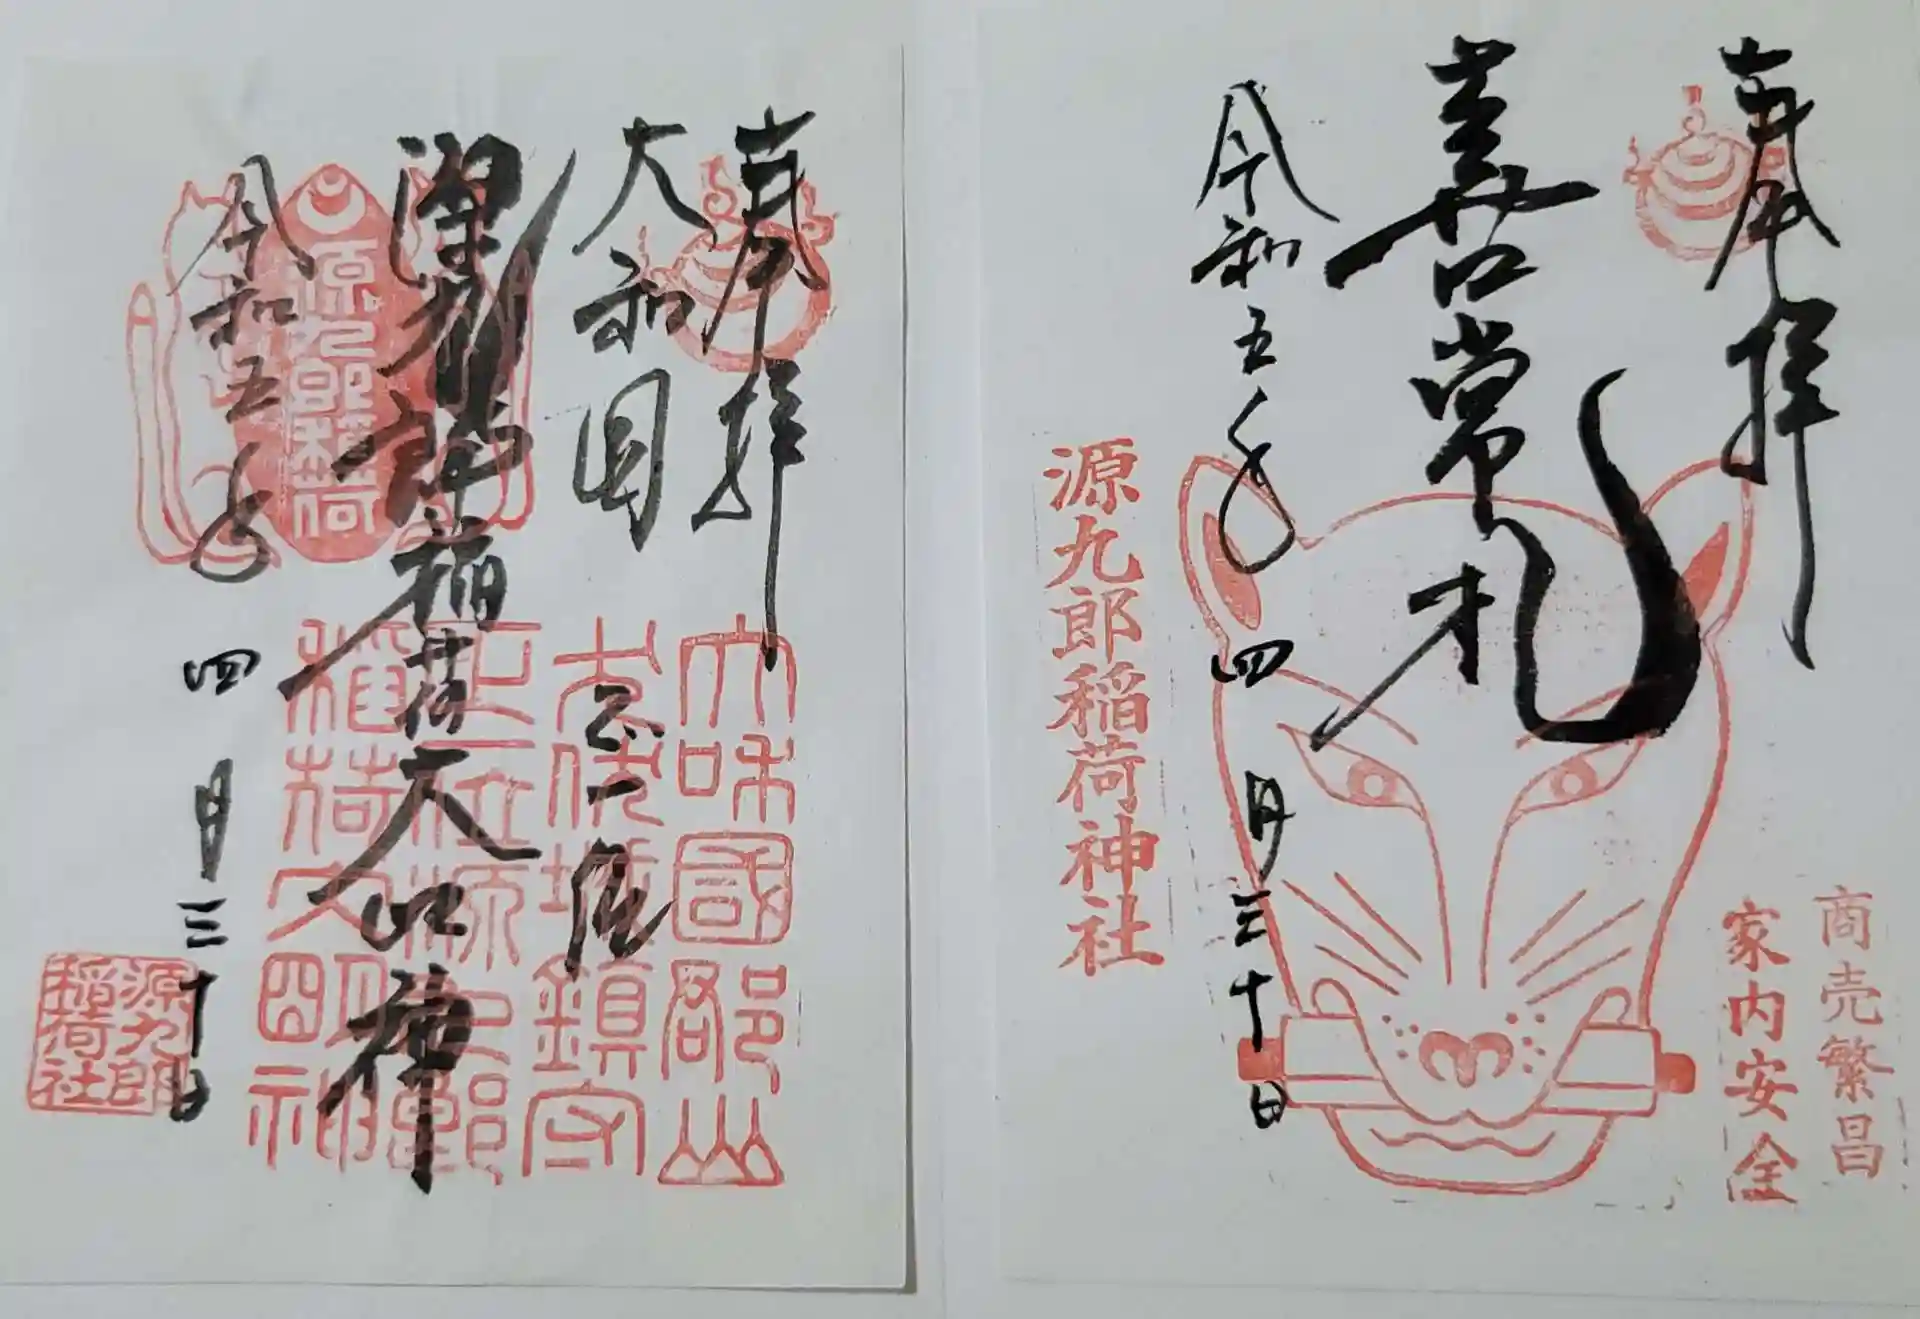 奉拝
喜常
令和五年四月三十日
商売繁昌
家内安全
源九郎稲荷神社
奉拝
大和国
正一位
源九郎稲荷大明神
令和五年四月三十日
源九郎稲荷
大和國郡山
城鎮守
正一位源九郎
稲荷大明神
源九郎
稲荷社